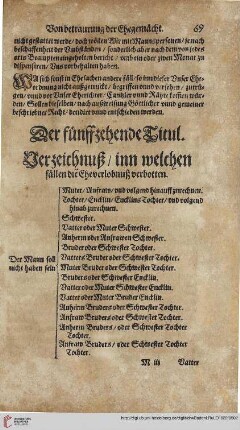 Von betraurung der Ehegemächt. 69
nicht gestattet werde / doch wöllen Wir mit Manns personen / je nach
beschaffenheit der Umbständen / sonderlich aber nach dem von jedes
orts Beampten einhelen bericht / vor ein oder zwen Monat zu
dispensieren / Uns vorbehalten haben.
WAs sich sonst in Ehesachen andere fäll / so inn dieser Unser Ehe-
ordnung nicht außgetruckt / begriffen und versehen / zutra-
gen / und vor Unser Ehericht
den / Sollen dieselben / nach anweisung Göttlicher unnd gemeiner
beschribener Recht / decidiert und entschieden werden.
Der fünffzehende Titul.
Verzeichnuß / inn welchen
fällen die Eheverlobnuß verbotten.
Der Mann soll
nicht haben sein
Muter / Anfraw / und volgend hinauff zurechnen.
Tochter / Encklin / Encklins Tochter / und volgend
hinab zurechnen.
Schwester.
Vatter oder Muter Schwester.
Anherrn oder Anfrawen Schwester.
Bruder oder Schwester Tochter.
Vatters Bruder oder Schwester Tochter.
Muter Bruder oder Schwester Tochter
Bruder oder Schwester Encklin.
Vatter oder Muter Schwester Encklin.
Vatter oder Muter Bruder Encklin.
Anherrn Bruder oder Schwester Tochter.
Anfraw Bruder oder Schwester Tochter.
Anherrn Bruders / oder Schwester Tochter
Tochter.
Anfraw Bruders / oder Schwester Tochter
Tochter.
M iij Vatter